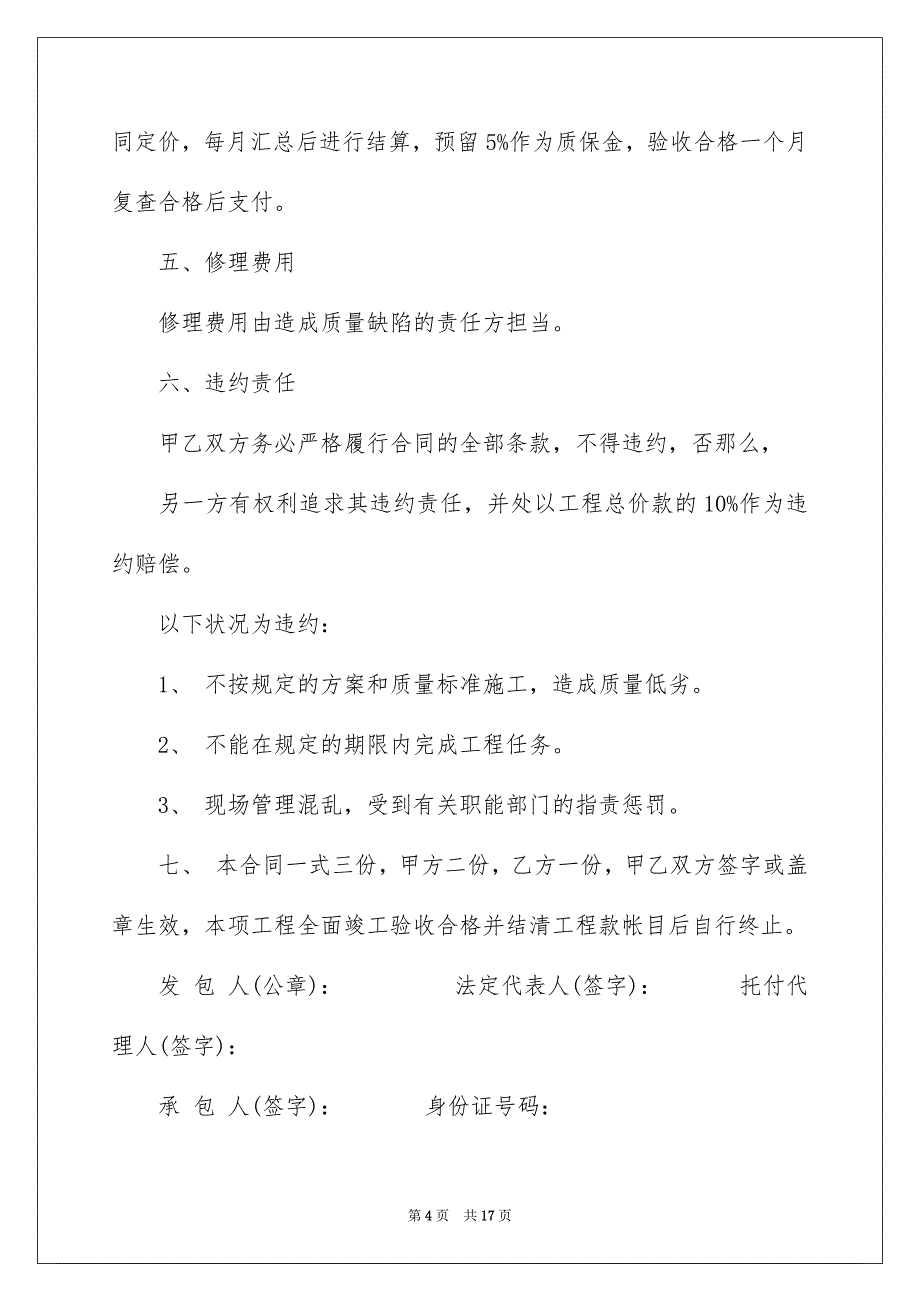 同定价，每月汇总后进行结算，预留 5%作为质保金，验收合格一个月
复查合格后支付。
五、修理费用
修理费用由造成质量缺陷的责任方担当。
六、违约责任
甲乙双方务必严格履行合同的全部条款，不得违约，否那么，
另一方有权利追求其违约责任，并处以工程总价款的 10%作为违
约赔偿。
以下状况为违约：
1、 不按规定的方案和质量标准施工，造成质量低劣。
2、 不能在规定的期限内完成工程任务。
3、 现场管理混乱，受到有关职能部门的指责惩罚。
七、 本合同一式三份，甲方二份，乙方一份，甲乙双方签字或盖
章生效，本项工程全面竣工验收合格并结清工程款帐目后自行终止。
发 包 人(公章)： 法定代表人(签字)： 托付代
理人(签字)：
承 包 人(签字)： 身份证号码：
第 4 页 共 17 页